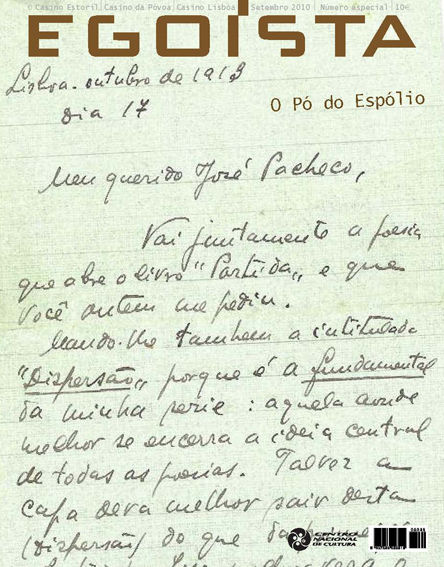 © Casino Estoril | Casino da Póvoa | Casino Lisboa | Setembro 2010 | Número especial | 10€
EGOÍSTA
O Pó do Espólio
Lisboa. outubro de 1913
dia 17
Meu querido José Pacheco,
Vai juntamente a poesia
que abre o livro "Partida" e que
Você ontem me pediu.
Mando-lhe tambem a intitulada
"Dispersão" porque é a fundamental
da minha serie : aquela aonde
melhor se encerra a ideia central
de todas as poesias. Talvez a
capa deva melhor sair desta
(Dispersão) do que da
CENTRO
NACIONAL
DE CULTURA